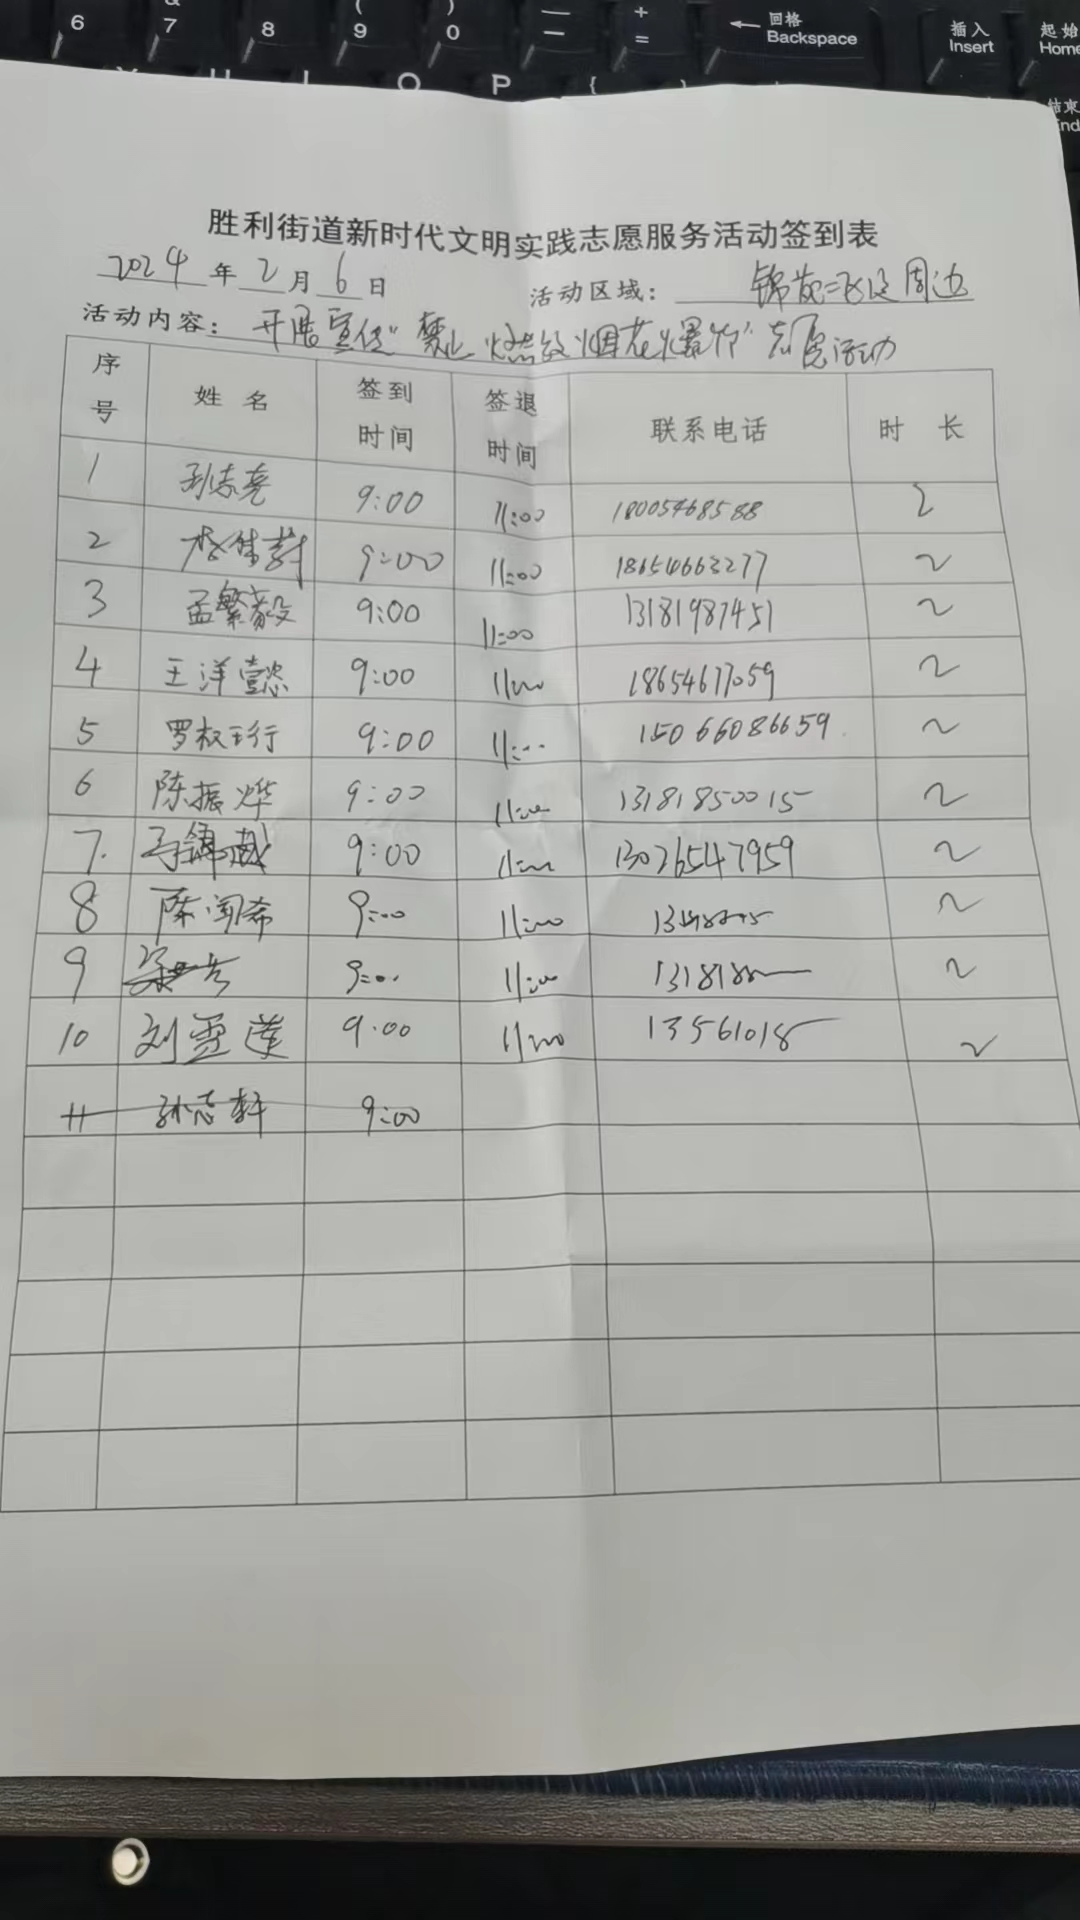 6 7 8 9 0 — + =
( )
回格 Backspace
插入 Insert
起始 Home
O P {
结束
胜利街道新时代文明实践志愿服务活动签到表
2024年2月6日 活动区域：锦苑二 周边
活动内容：开展宣传"禁止燃放烟花爆竹"志愿活动
序号 姓名 签到时间 签退时间 联系电话 时长
1 孙志尧 9:00 11:00 18005468588 2
2 9:00 11:00 18654663277 2
3 孟繁毅 9:00 11:00 13181987451 2
4 王洋懿 9:00 11:00 18654677059 2
5 罗权珩 9:00 11:00 15066086659 2
6 陈振烨 9:00 11:00 13181850015 2
7. 9:00 11:00 13026547959 2
8 陈闻希 9:00 11:00 2
9 9:00 11:00 2
10 刘雪莲 9:00 11:00 2
11 孙志轩 9:00